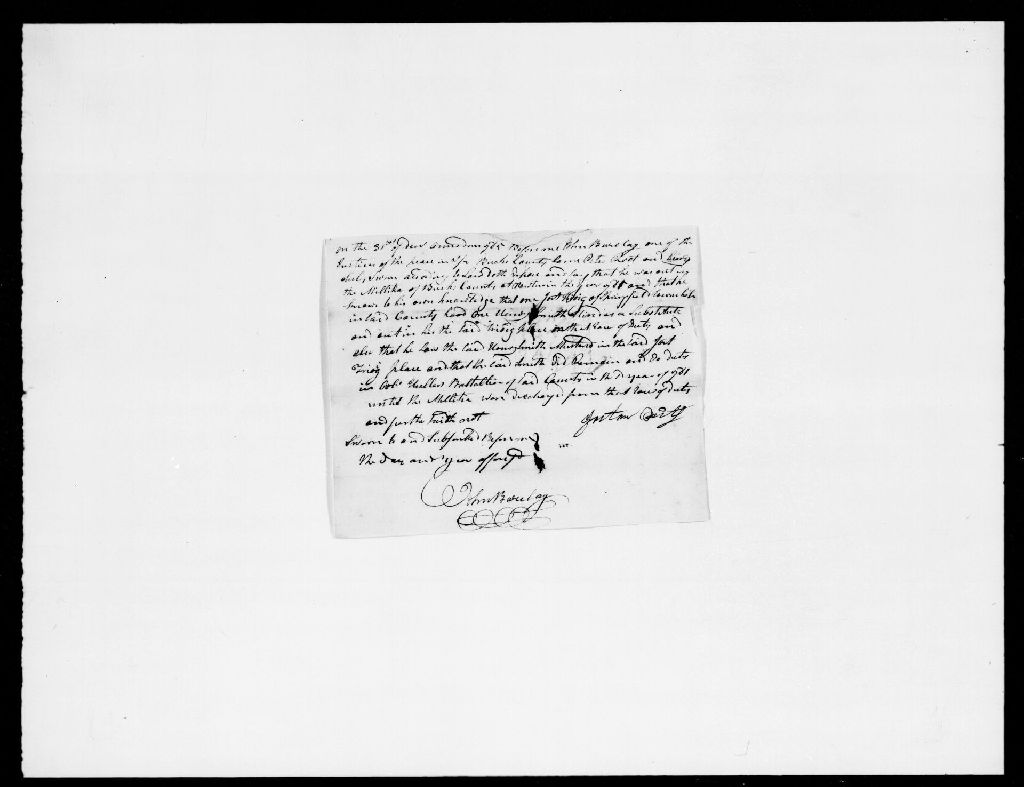 on the 31st of Decr annodom 1785 Before me John Barclay one of the
Justices of the peace in & for Bucks County Came Peter and being
duly Sworn according to Law doth depose and say that he was out with
the Millitia of Bucks County at in the year 1781 and that he
Swears to his own knowledge that one of Springfield Township
in said County had one Henry Smith as a Substitute
and out in his the said place in that Tour of Duty and
also that he saw the said Henry Smith Mustered in the said
place and that the said Smith did Remain and Do duty
in Colo. Battallion of said County in the year of 1781
until the Millitia were discharged from that Tour of duty
and further saith not
Sworn to and Subscribed Before me
the Day and year aforesd
John Barclay